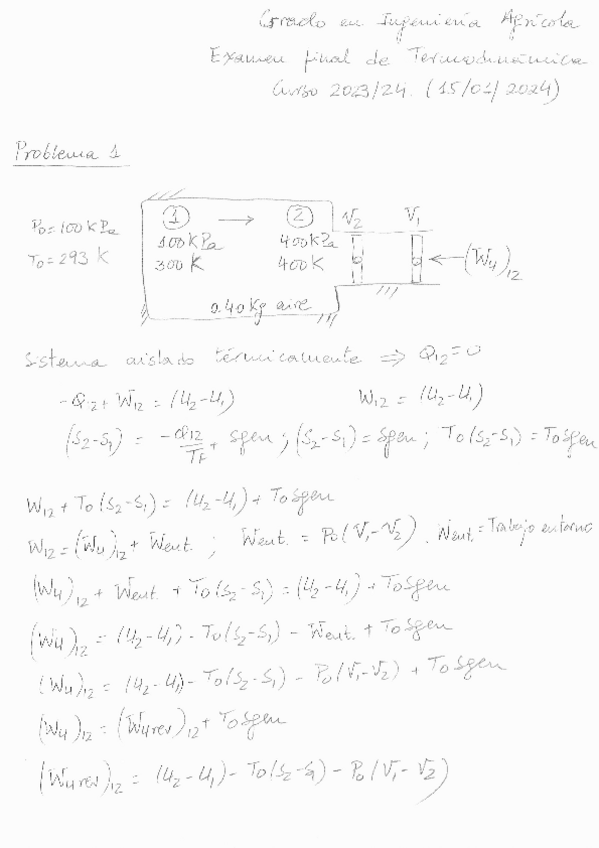 Grado en Ingeniería Agrícola
Examen final de Termodinámica
Curso 2023/24. (15/01/2024)
Problema 1
P0 = 100 kPa
T0 = 293 K
1 → 2
100 kPa 400 kPa
300 K 400 K
0.40 Kg aire
V2 V1
(Wu)12
Sistema aislado térmicamente ⇒ Q12 = 0
-Q12 + W12 = (U2-U1) W12 = (U2-U1)
(S2-S1) = -Q12/TF + Sgen ; (S2-S1) = Sgen ; T0(S2-S1) = T0Sgen
W12 + T0(S2-S1) = (U2-U1) + T0Sgen
W12 = (Wu)12 + Went ; Went. = P0(V1-V2). Went. = Trabajo entorno
(Wu)12 + Went. + T0(S2-S1) = (U2-U1) + T0Sgen
(Wu)12 = (U2-U1) - T0(S2-S1) - Went. + T0Sgen
(Wu)12 = (U2-U1) - T0(S2-S1) - P0(V1-V2) + T0Sgen
(Wu)12 = (Wurev)12 + T0Sgen
(Wurev)12 = (U2-U1) - T0(S2-S1) - P0(V1-V2)